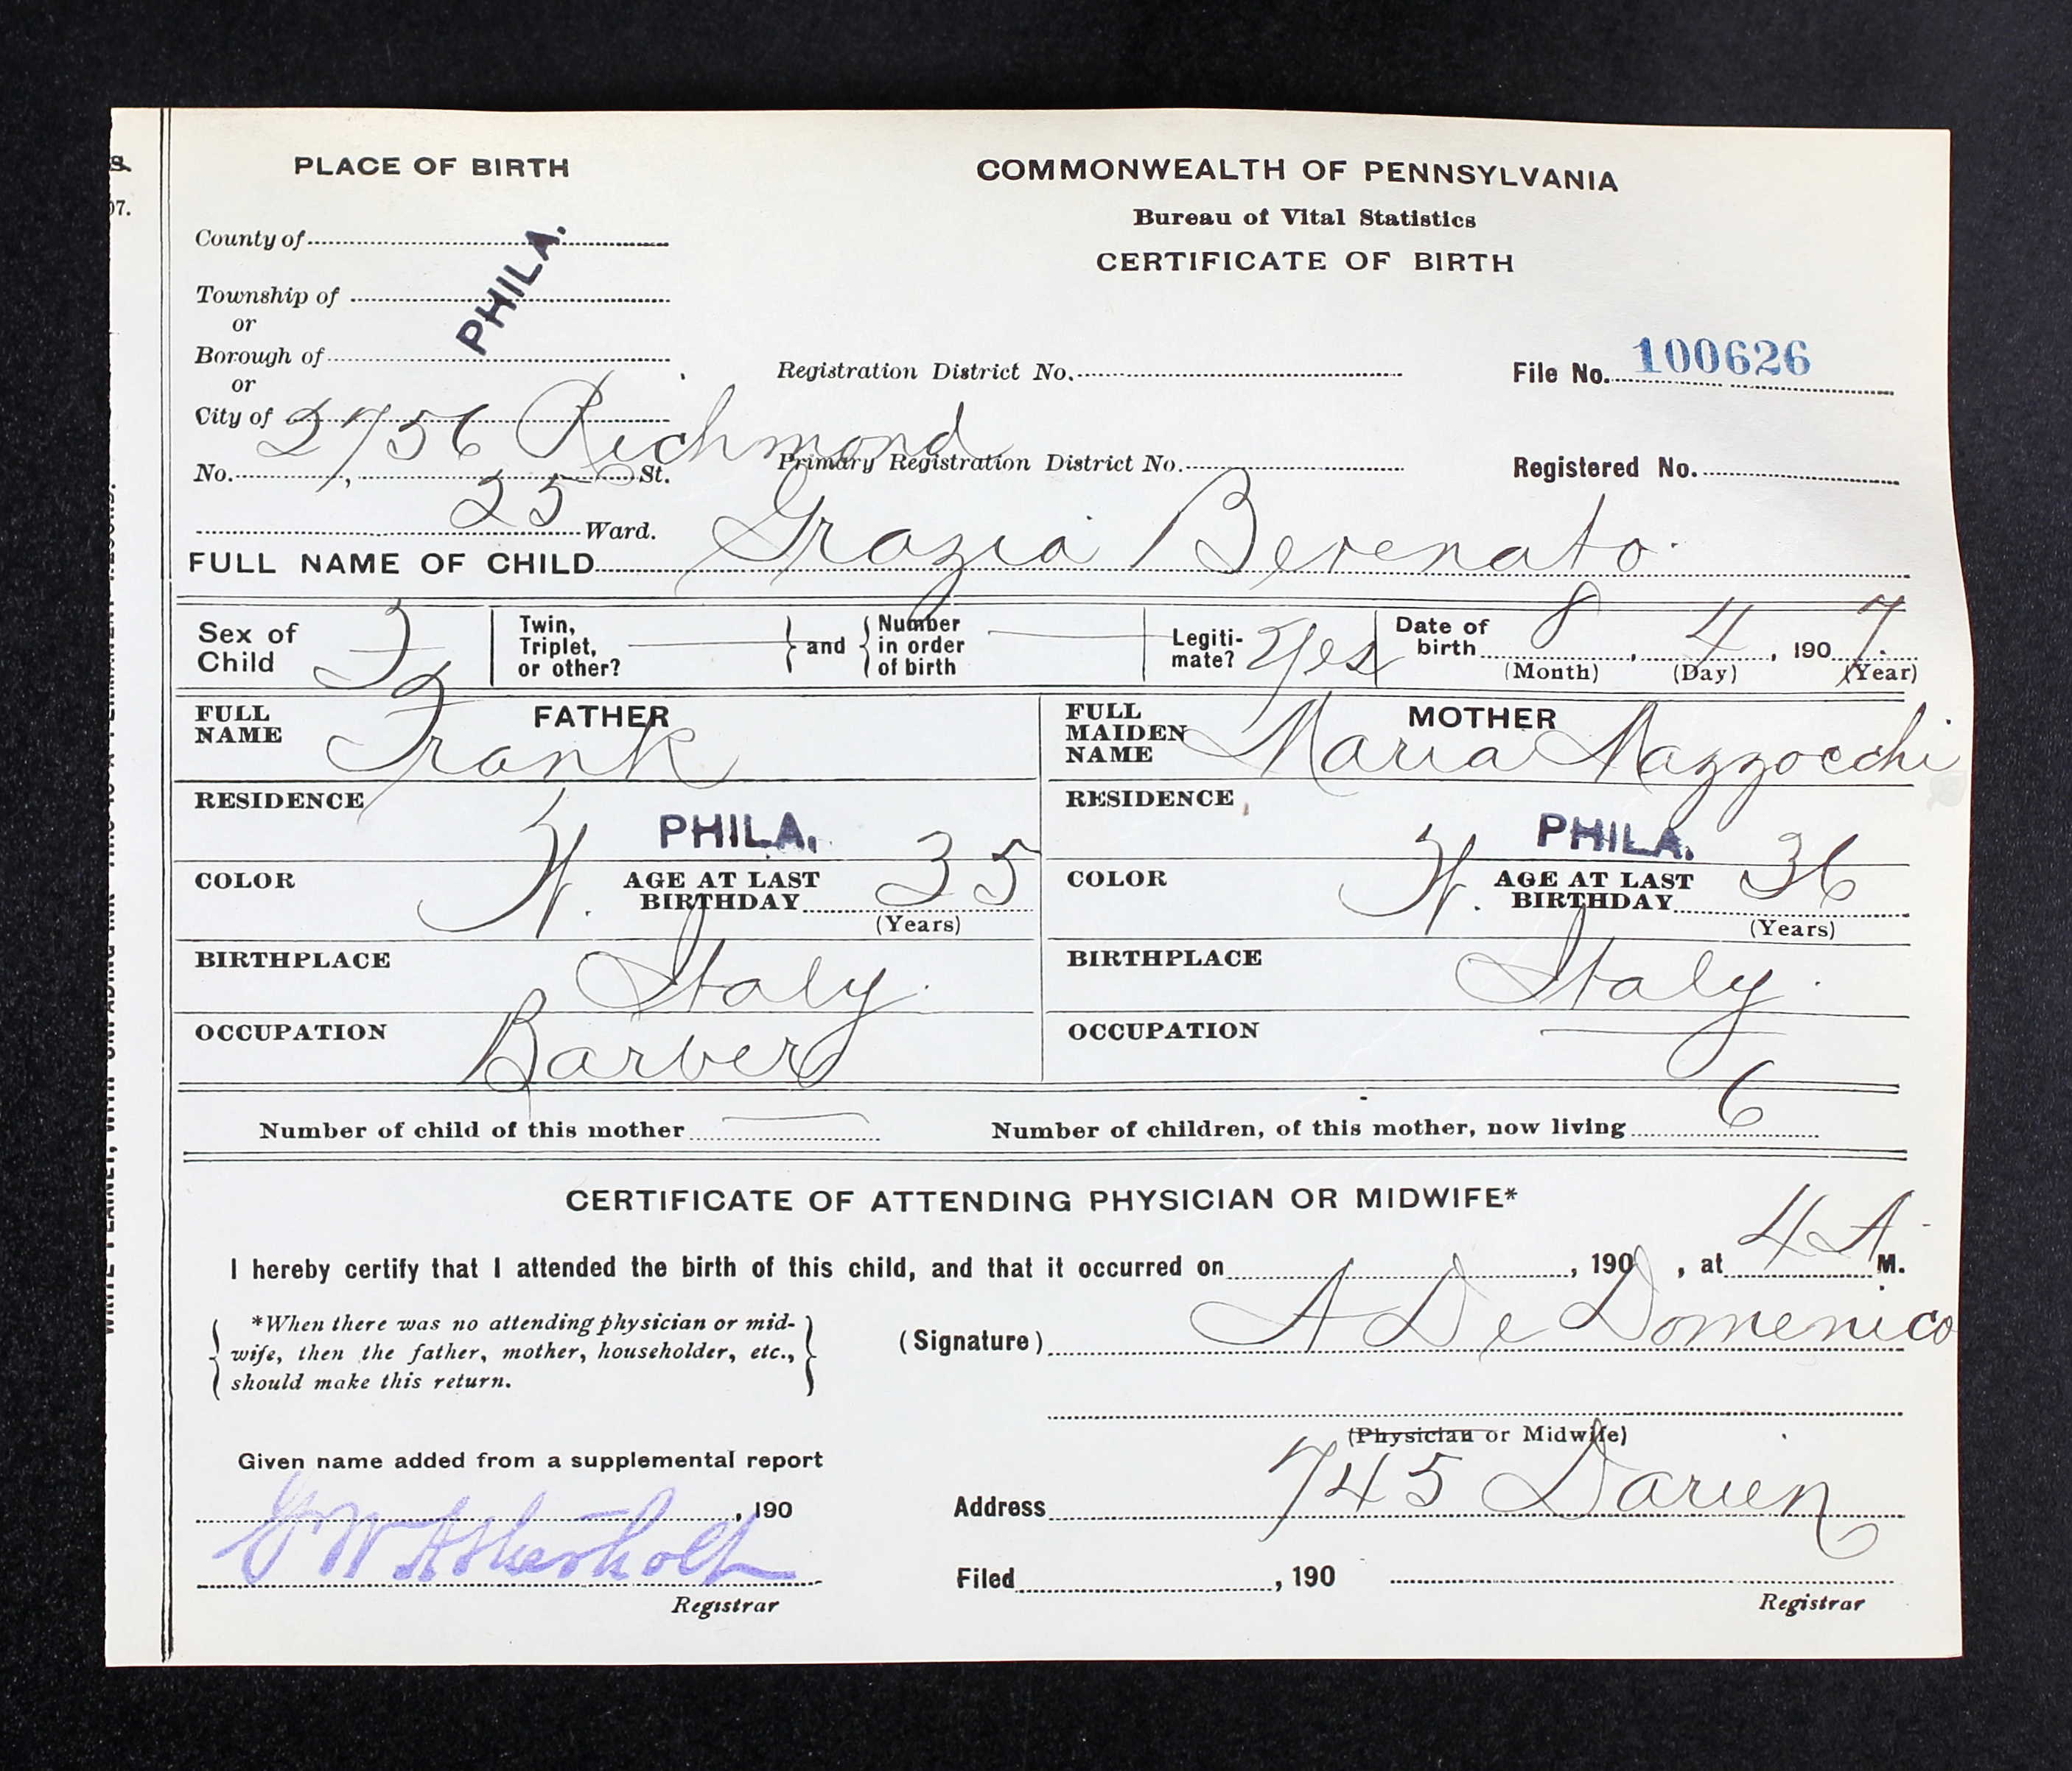 PLACE OF BIRTH
COMMONWEALTH OF PENNSYLVANIA
Bureau of Vital Statistics
CERTIFICATE OF BIRTH
07.
County of
PHILA.
Township of
or
Borough of
or
City of
Registration District No.
File No. 100626
No. 2756 Richmond St.
Primary Registration District No.
Registered No.
25 Ward.
FULL NAME OF CHILD Grazia Berenato.
Sex of Child F
Twin, Triplet, or other? and Number in order of birth
Legiti-mate? Yes
Date of birth 8, 4, 1907.
(Month) (Day) (Year)
FATHER
FULL NAME Frank
MOTHER
FULL MAIDEN NAME Maria Mazzocchi
RESIDENCE PHILA.
RESIDENCE PHILA.
COLOR W. AGE AT LAST BIRTHDAY 35
(Years)
COLOR W. AGE AT LAST BIRTHDAY 36
(Years)
BIRTHPLACE Italy.
BIRTHPLACE Italy.
OCCUPATION Barber
OCCUPATION
Number of child of this mother
Number of children, of this mother, now living 6
CERTIFICATE OF ATTENDING PHYSICIAN OR MIDWIFE*
I hereby certify that I attended the birth of this child, and that it occurred on , 190 , at 4 A M.
*When there was no attending physician or mid-
wife, then the father, mother, householder, etc.,
should make this return.
(Signature) A De Domenico
(Physician or Midwife)
Given name added from a supplemental report
, 190
Address 745 Darien
Filed , 190
Registrar
Registrar